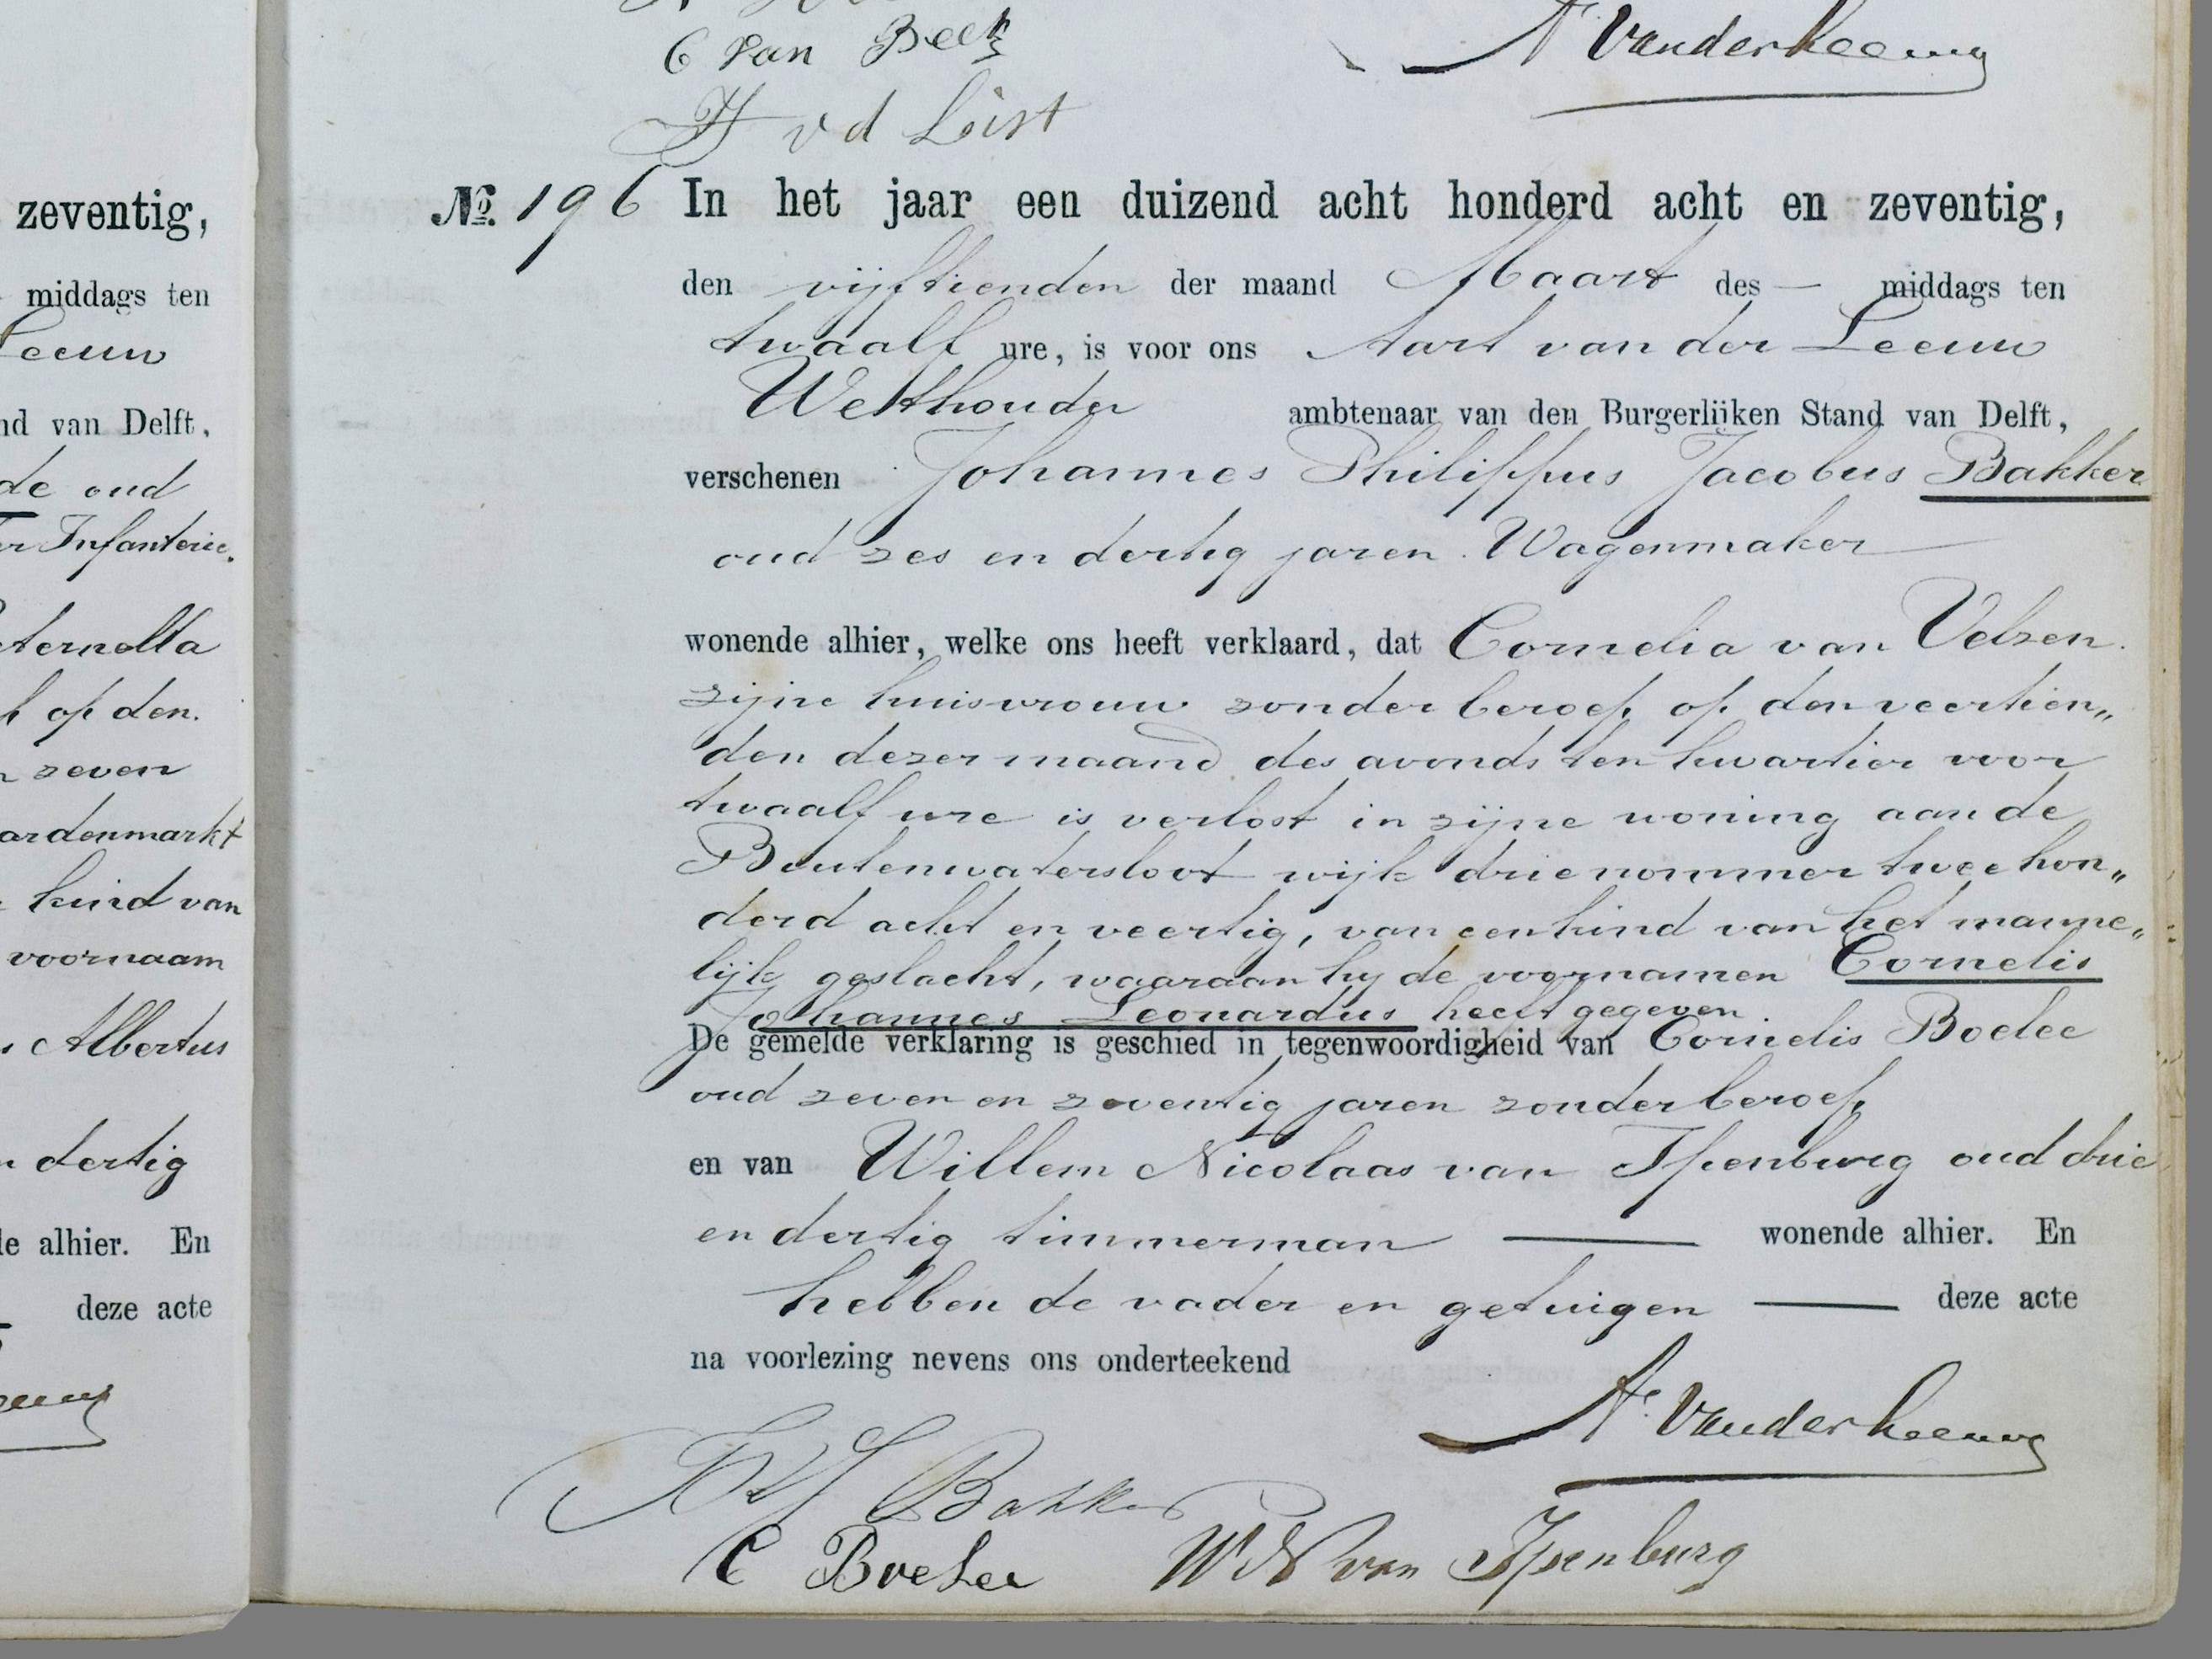 zeventig,
middags ten
Leeuw
nd van Delft,
de oud
er Infanterie.
eternella
op den
zeven
ardenmarkt
kind van
voornaam
Albertus
dertig
de alhier. En
deze acte
C van Beek
H vd List
A Vanderleeuw
№. 196 In het jaar een duizend acht honderd acht en zeventig,
den vijftienden der maand Maart des — middags ten
twaalf ure, is voor ons Aart van der Leeuw
Wethouder ambtenaar van den Burgerlijken Stand van Delft,
verschenen Johannes Philippus Jacobus Bakker
oud zes en dertig jaren. Wagenmaker
wonende alhier, welke ons heeft verklaard, dat Cornelia van Velzen.
zijne huisvrouw zonder beroep, op den veertien„
den dezer maand des avonds ten kwartier voor
twaalf ure is verlost in zijne woning aan de
Buitenwatersloot wijk drie nommer twee hon„
derd acht en veertig, van een kind van het manne„
lijk geslacht, waaraan hy de voornamen Cornelis
Johannes Leonardus heeft gegeven
De gemelde verklaring is geschied in tegenwoordigheid van Cornelis Boelee
oud zeven en zeventig jaren zonder beroep,
en van Willem Nicolaas van Ipenburg oud drie
en dertig timmerman — wonende alhier. En
hebben de vader en getuigen — deze acte
na voorlezing nevens ons onderteekend
A Vanderleeuw
Bakker
C Boelee W N van Ipenburg